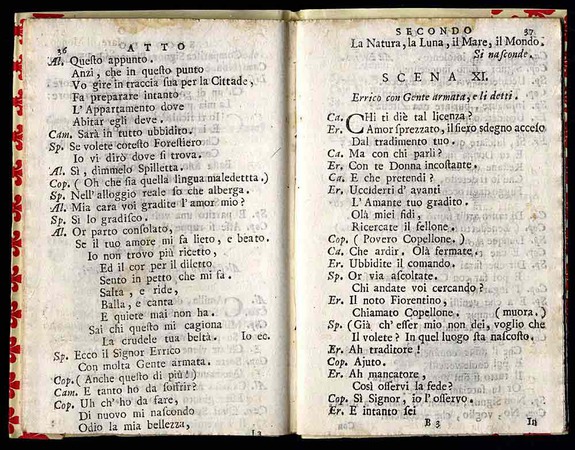 36 ATTO
Al. Questo appunto.
Anzi, che in questo punto
Vo gire in traccia sua per la Cittade,
Fa preparare intanto
L' Appartamento dove
Abitar egli deve.
Cam. Sarà in tutto ubbidito.
Sp. Se volete cotesto Forestiero
Io vi dirò dove si trova.
Al. Sì, dimmelo Spilletta.
Cop. ( Oh che sia quella lingua maledettta. )
Sp. Nell' alloggio reale so che alberga.
Al. Mia cara voi gradite l' amor mio?
Sp. Sì lo gradisco.
Al. Or parto consolato,
Se il tuo amore mi fa lieto, e beato.
Io non trovo più ricetto,
Ed il cor per il diletto
Sento in petto che mi fa.
Salta, e ride,
Balla, e canta
E quiete mai non ha.
Sai chi questo mi cagiona
La crudele tua beltà. Io ec.
Sp. Ecco il Signor Errico
Con molta Gente armata.
Cop. ( Anche questo di più!)
Cam. E tanto ho da soffrir?
Cop. Uh ch' ho da fare,
Di nuovo mi nascondo
Odio la mia bellezza,
La
SECONDO 37
La Natura, la Luna, il Mare, il Mondo.
Si nasconde.
SCENA XI.
Errico con Gente armata, e li detti.
Ca. CHi ti diè tal licenza?
Er. Amor sprezzato, il fiero sdegno acceso
Dal tradimento tuo.
Ca. Ma con chi parli?
Er. Con te Donna incostante.
Ca. E che pretendi?
Er. Ucciderti d' avanti
L' Amante tuo gradito.
Olà miei fidi,
Ricercate il fellone.
Cop. ( Povero Copellone. )
Ca. Che ardir. Olà fermate.
Er. Ubbidite il comando.
Sp. Or via ascoltate.
Chi andate voi cercando?
Er. Il noto Fiorentino,
Chiamato Copellone. ( muora. )
Sp. (Già ch' esser mio non dei, voglio che
Il volete? In quel luogo sta nascosto.
Er. Ah traditore!
Cop. Ajuto.
Er. Ah mancatore,
Così osservi la fede?
Cop. Sì Signor, io l' osservo.
Er. E intanto sei
B 3 In